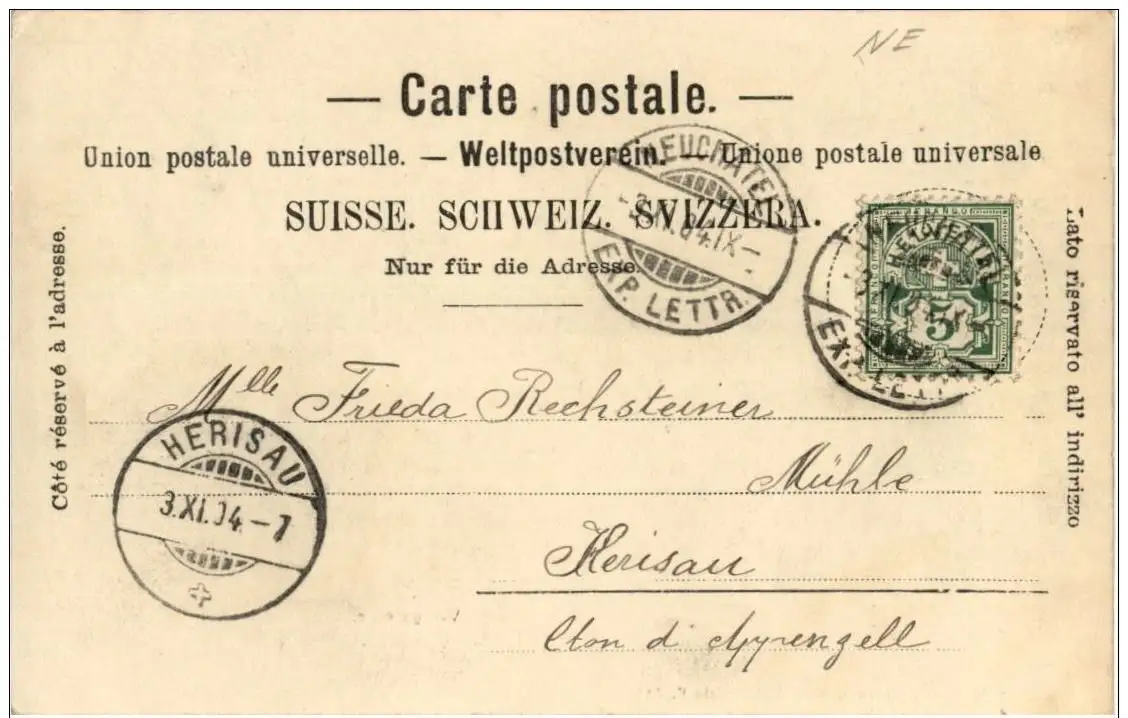 NE
— Carte postale. —
Union postale universelle. — Weltpostverein. — Unione postale universale
SUISSE. SCHWEIZ. SVIZZERA.
Nur für die Adresse.
Côté réservé à l'adresse.
Lato riservato all' indirizzo
NEUCHATEL
XI.04.IX-
EXP. LETTR.
NEUCHATEL
EXP. LETTR.
FRANCO
5
Mlle Frieda Rechsteiner
Mühle
Herisau
Cton d'Appenzell
HERISAU
3.XI.04.-7